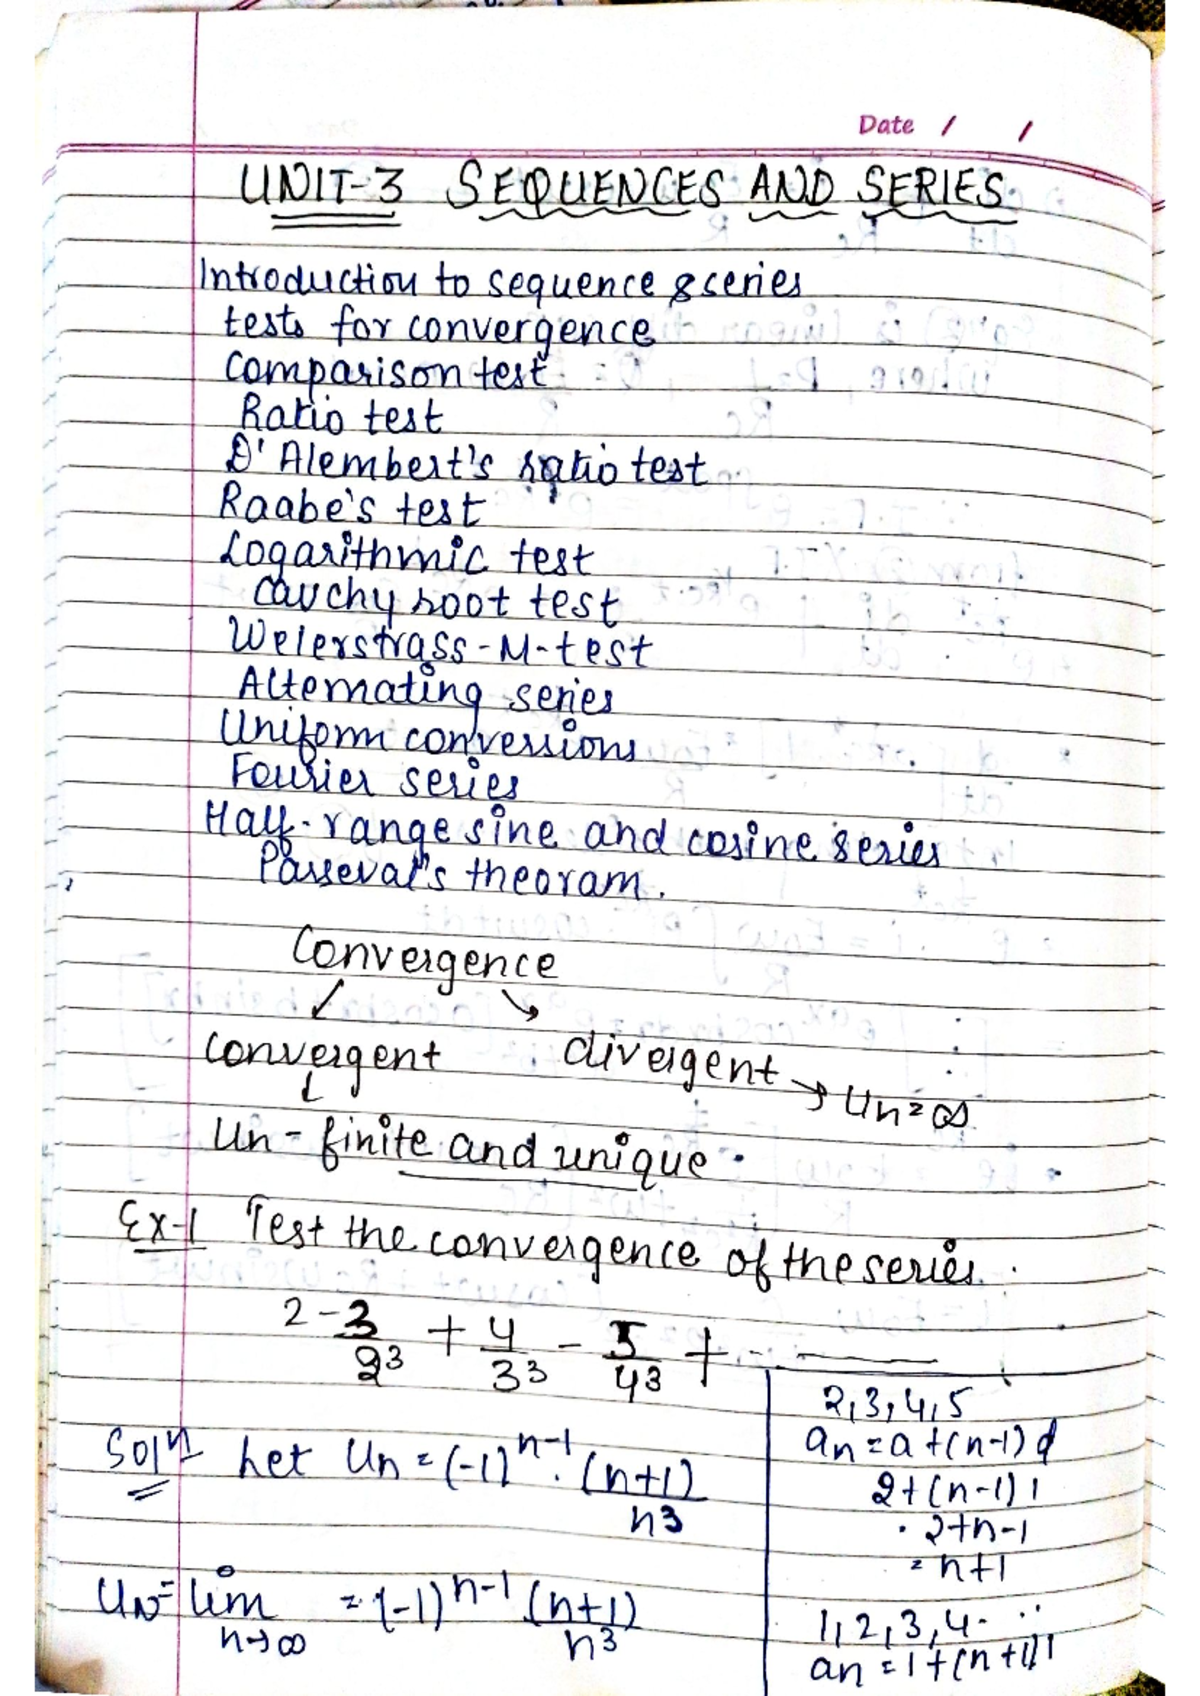 Date / /
UNIT-3 SEQUENCES AND SERIES
Introduction to sequence & series
tests for convergence
Comparison test
Ratio test
D'Alembert's ratio test
Raabe's test
Logarithmic test
Cauchy root test
Weierstrass-M-test
Alternating series
Uniform conversions
Fourier series
Half-range sine and cosine series
Parseval's theoram.
Convergence
↙ ↘
convergent divergent → Un=∞
↓
Un - finite and unique.
Ex-1 Test the convergence of the series.
2 - 3/2³ + 4/3³ - 5/4³ + ...
Solⁿ Let Un = (-1)ⁿ⁻¹ . (n+1)/n³
Un = lim n→∞ = (-1)ⁿ⁻¹ . (n+1)/n³
2,3,4,5
an = a+(n-1)d
2+(n-1)1
2+n-1
= n+1
1,2,3,4...
an = 1+(n+1)1